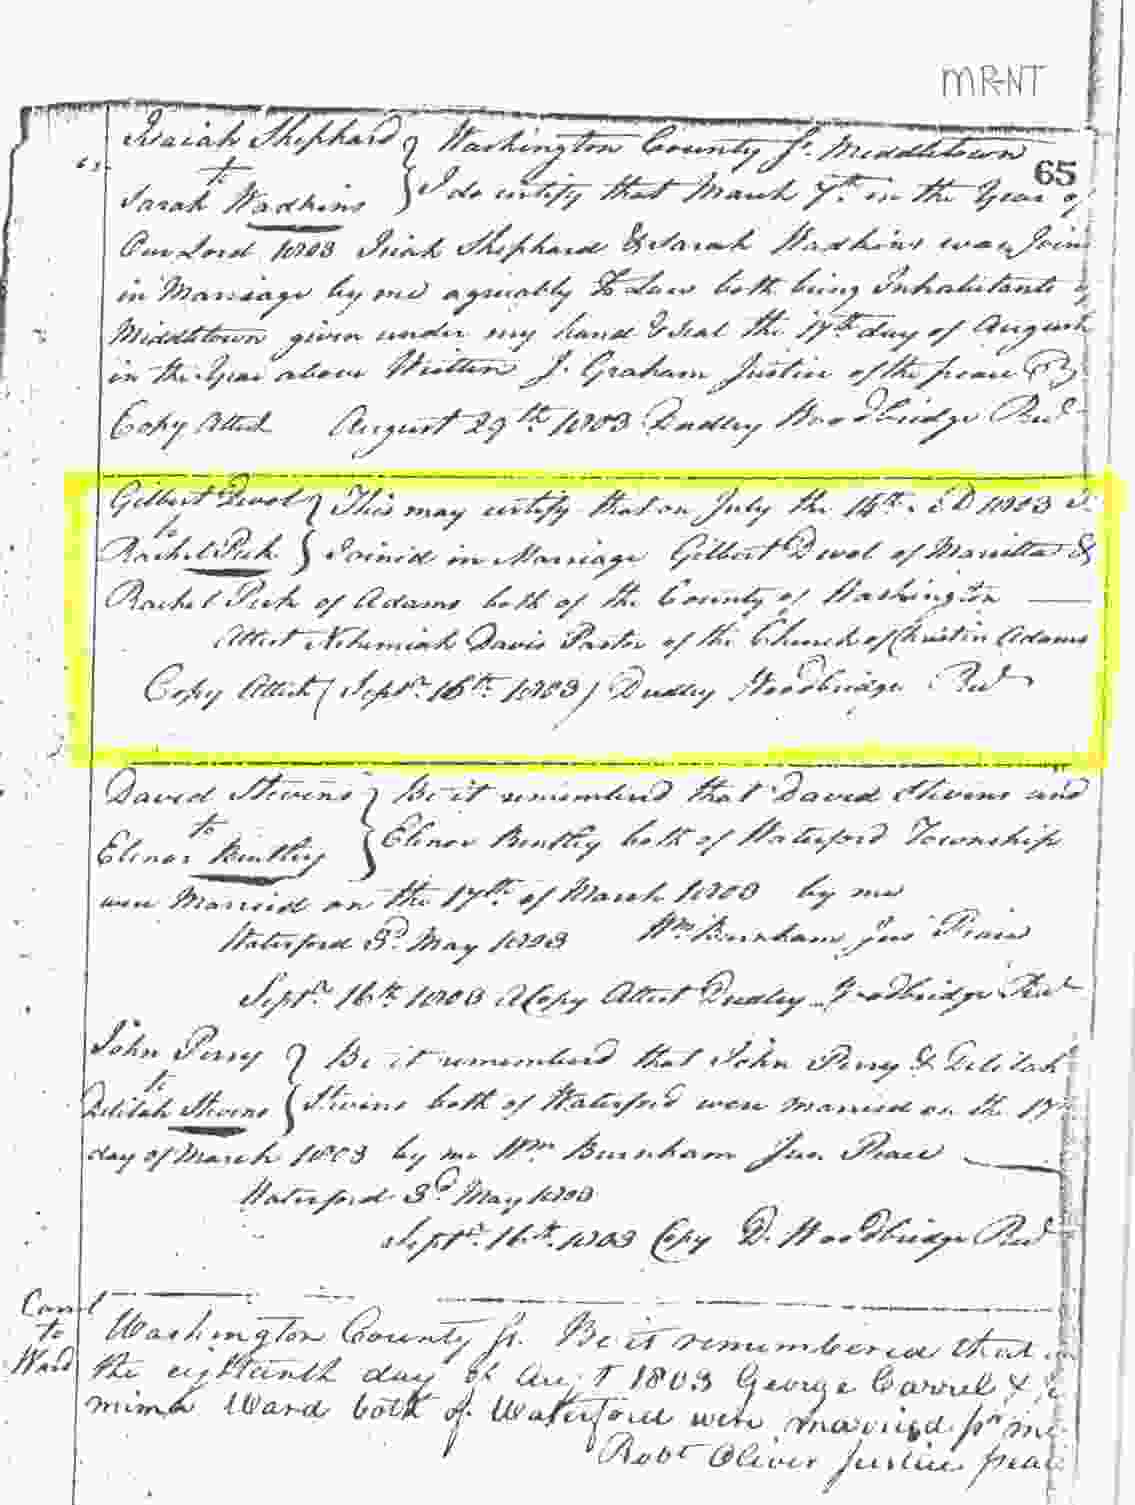 MR-NT
65
Isaiah Shephard } Washington County Ss. Middletown
to
Sarah Wadkins } I do certify that March 7th in the Year of
Our Lord 1803 Isiah Shephard & Sarah Wadkins was Join
in Marriage by me agreeably To Law both being Inhabitants of
Middletown given under my hand & Seal the 17th day of August
in the Year above Written J. Graham Justice of the peace
Copy Attest August 29th 1803 Dudley Woodbridge Red
Gilbert Devol } This may certify that on July the 14th AD 1803 I
to
Rachel Peck } Joined in Marriage Gilbert Devol of Marietta &
Rachel Peck of Adams both of the County of Washington
Attest Nehemiah Davis Pastor of the Church of Christ in Adams
Copy Attest (Septr 16th 1803) Dudley Woodbridge Red
David Stevens } Be it rememberd that David Stevens and
to
Elenor Bentley } Elenor Bentley both of Waterford Township
were Married on the 17th of March 1803 by me
Waterford 3d May 1803 Wm Burnham Jus Peace
Septr 16th 1803 A Copy Attest Dudley Woodbridge Red
John Perry } Be it rememberd that John Perry & Delilah
to
Delilah Stevens } Stevins both of Waterford were married on the 17th
day of March 1803 by me Wm Burnham Jus. Peace
Waterford 3d May 1803
Septr 16th 1803 Copy D. Woodbridge Red
Carrel
to
Ward
Washington County Ss. Be it remembered that on
the eighteenth day of Augt 1803 George Carrel &
mima Ward both of Waterford were married pr me
Robt Oliver Justice peace